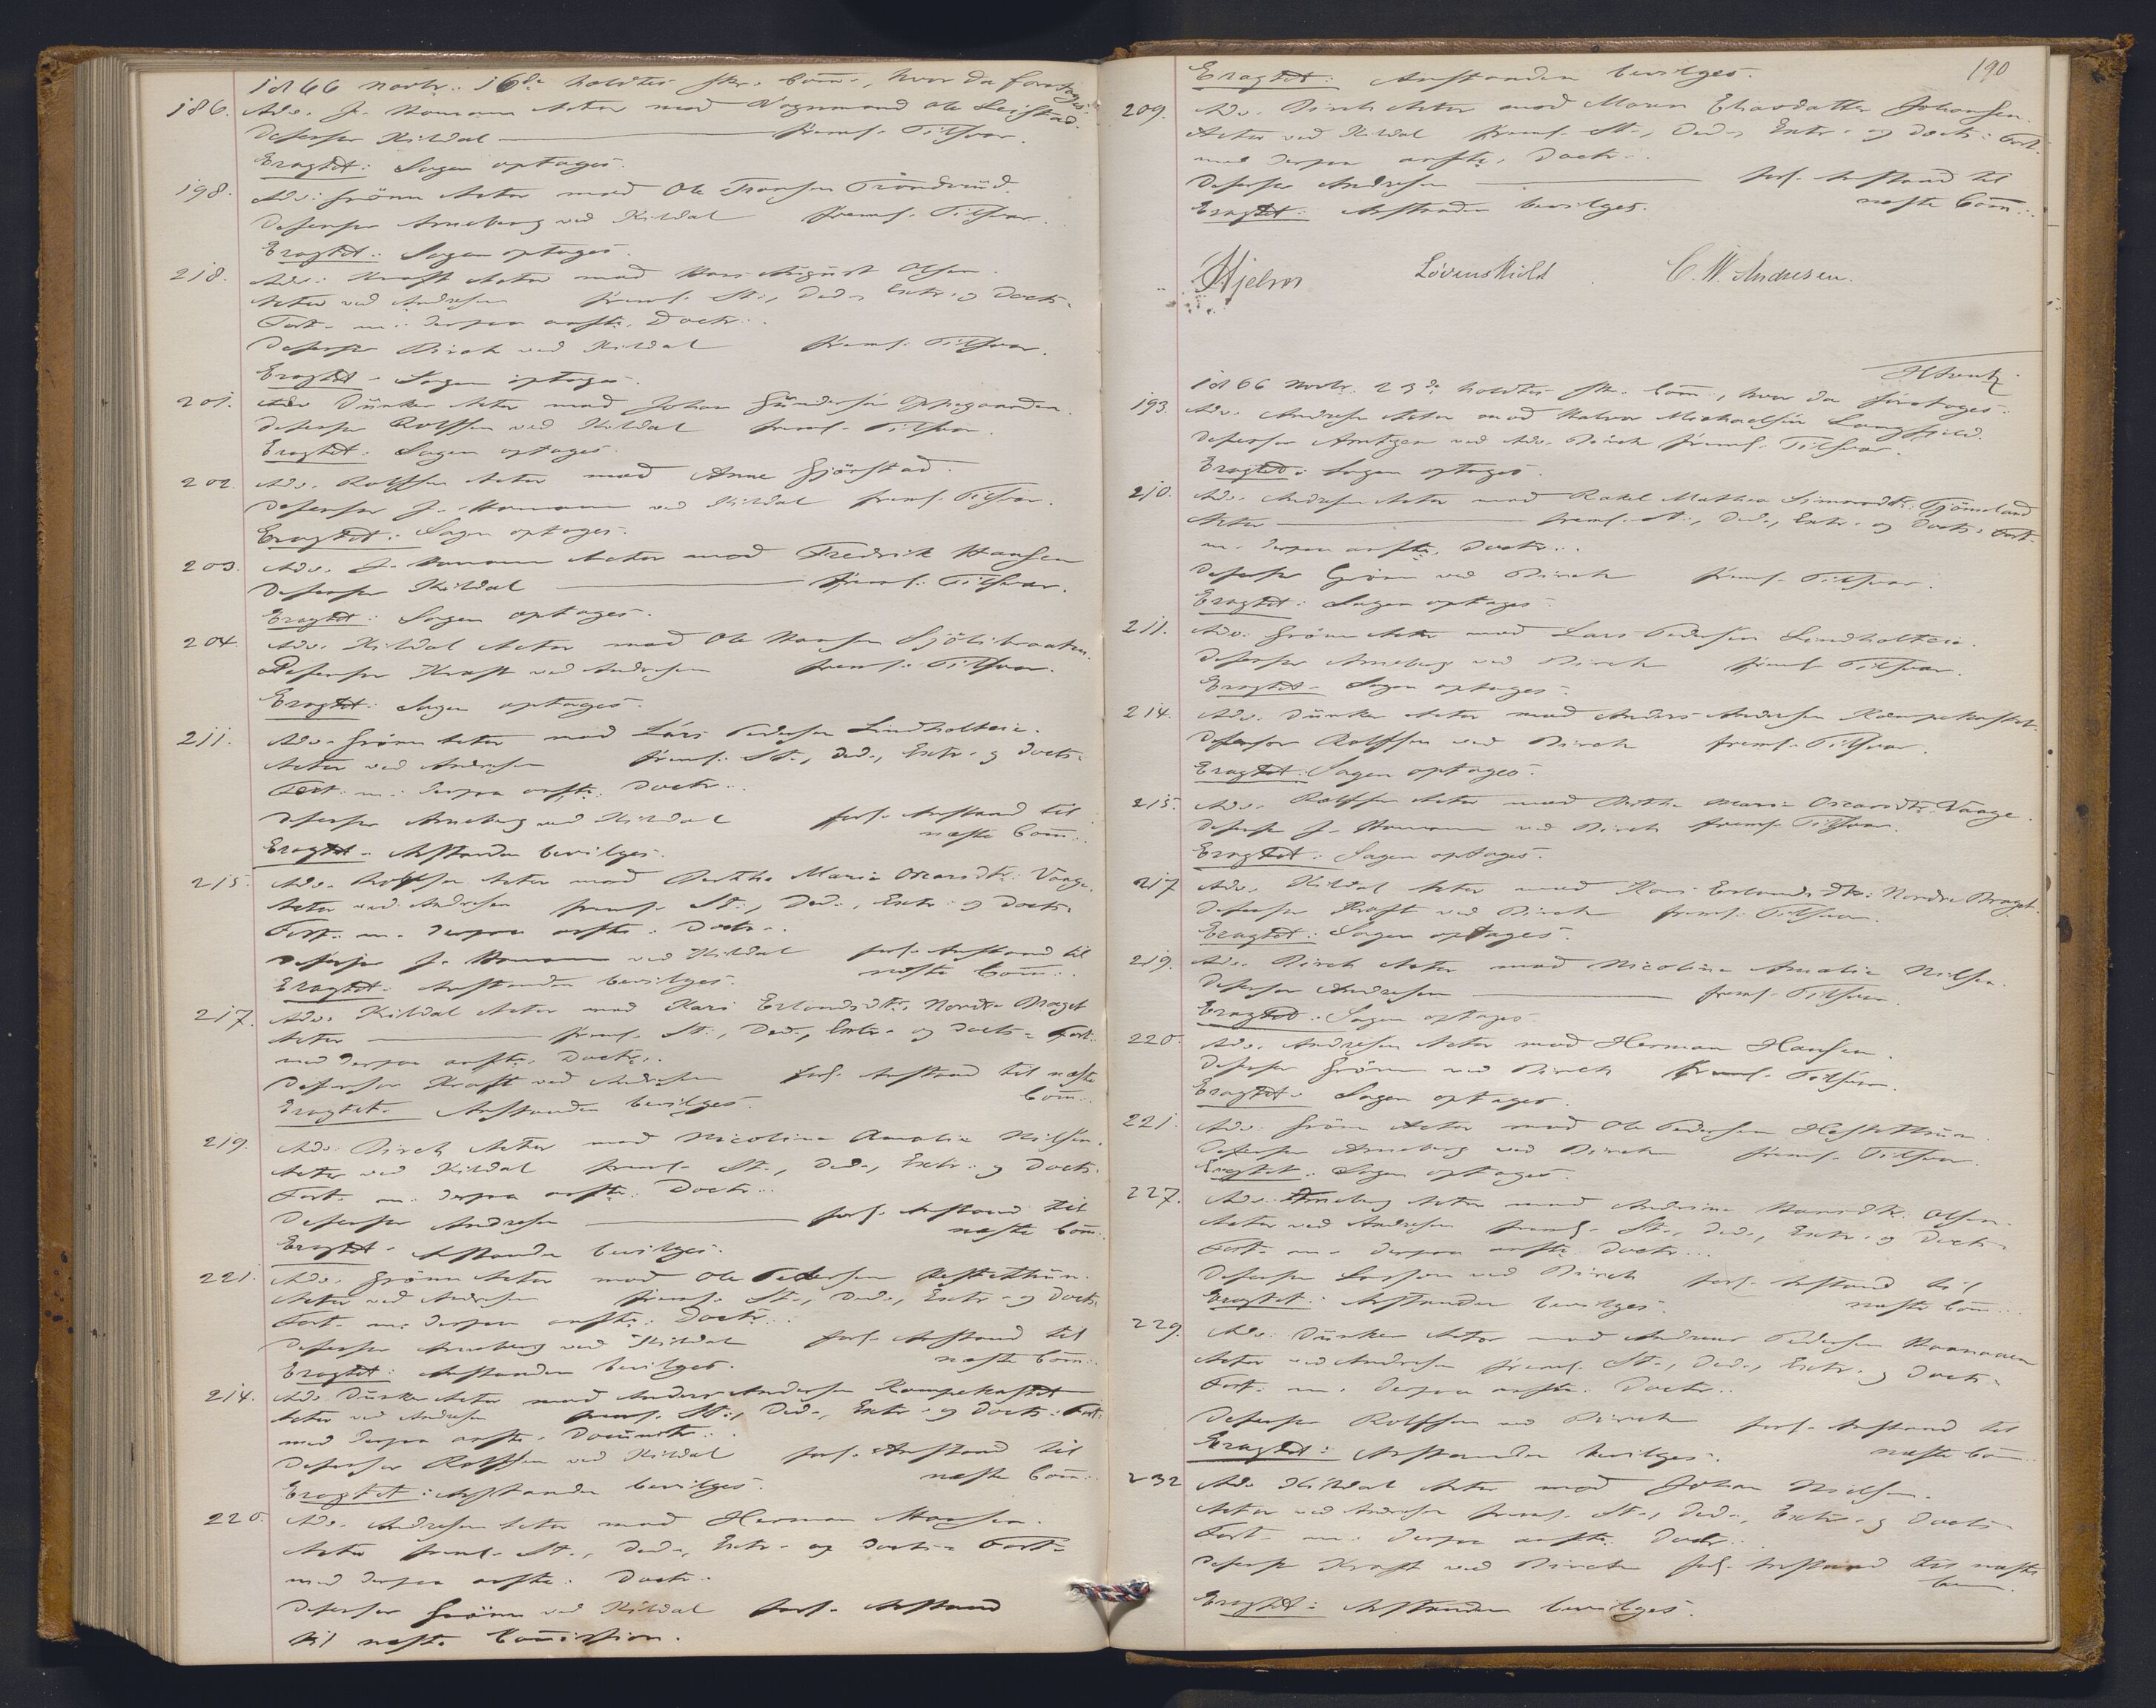 1866 Novbr. 16de holdtes Com:, hvor da foretoges:
186. Adv. J. Homann Actor mod Ole Leistad.
Defensor Kildal — fremf. Tilsvar.
Eragtet: Sagen optages.
198. Adv. Grönn Actor mod Ole Fransen Tröndrud.
Defensor Arneberg ved Kildal fremf. Tilsvar.
Eragtet: Sagen optages.
218. Adv. Kraft Actor mod Hans August Olsen.
Actor ved Andresen fremf. St:, Ded., Extr. og Docts.
Fort. m. derpaa anførte Doctr.
Defensor Birch ved Kildal fremf. Tilsvar.
Eragtet: Sagen optages.
201. Adv. Dünker Actor mod Johan Gundersen Oppegaarden.
Defensor Rolffsen ved Kildal fremf. Tilsvar.
Eragtet: Sagen optages.
202. Adv. Rolffsen Actor mod Anne Gjörstad.
Defensor J. Homann ved Kildal fremf. Tilsvar.
Eragtet: Sagen optages.
203. Adv. J. Homann Actor mod Fredrik Hansen
Defensor Kildal — fremf. Tilsvar.
Eragtet: Sagen optages.
204. Adv. Kildal Actor mod Ole Hansen Sjölibraaten.
Defensor Kraft ved Andresen fremf. Tilsvar.
Eragtet: Sagen optages.
211. Adv. Grönn Actor mod Lars Pedersen Lindholteie.
Actor ved Andresen fremf. St:, Ded., Extr. og Docts.
Fort. m. derpaa anførte Doctr.
Defensor Arneberg ved Kildal forl. Anstand til
næste Com:
Eragtet: Anstanden bevilges.
215. Adv. Rolffsen Actor mod Berthe Maria Oscarsdtr. Vaage.
Actor ved Andresen fremf. St:, Ded., Extr. og Docts.
Fort. m. derpaa anførte Doctr.
Defensor J. Homann ved Kildal forl. Anstand til
næste Com:
Eragtet: Anstanden bevilges.
217. Adv. Kildal Actor mod Kari Erlandsdtr. Nordre Braget
Actor — fremf. St:, Ded., Extr. og Docts. Fort.
med derpaa anførte Doctr.
Defensor Kraft ved Andresen forl. Anstand til næste
Com:
Eragtet: Anstanden bevilges.
219. Adv. Birch Actor mod Nicoline Amalie Nilsen.
Actor ved Kildal fremf. St:, Ded., Extr. og Docts.
Fort. m. derpaa anførte Doctr.
Defensor Andresen — forl. Anstand til
næste Com:
Eragtet: Anstanden bevilges.
221. Adv. Grönn Actor mod Ole Pedersen Hestethun.
Actor ved Andresen fremf. St:, Ded., Extr. og Docts.
Fort. m. derpaa anførte Doctr.
Defensor Arneberg ved Kildal forl. Anstand til
næste Com:
Eragtet: Anstanden bevilges.
214. Adv. Dünker Actor mod Anders Andersen Kampekastet
Actor ved Andresen fremf. St:, Ded., Extr. og Docts. Fort.
med derpaa anførte Documtr.
Defensor Rolffsen ved Kildal forl. Anstand til
næste Com:
Eragtet: Anstanden bevilges.
220. Adv. Andresen Actor mod Herman Hansen.
Actor fremf. St., Ded., Extr. og Docts. Fort.
med derpaa anførte Doctr.
Defensor Grönn ved Kildal forl. Anstand
til næste Comission.
190
Eragtet: Anstanden bevilges.
209. Adv. Birch Actor mod Maren Eliasdatter Johansen.
Actor ved Kildal fremf. St., Ded., Extr. og Docts. Fort.
med derpaa anførte Doctr.
Defensor Andresen — forl. Anstand til
næste Com:
Eragtet: Anstanden bevilges.
Hjelm Lövenskiold C. W. Andresen.
1866 Novbr. 23de holdtes Com:, hvor da foretoges:
193. Adv. Andresen Actor mod Halvor Michaelsen Langfeld.
Defensor Arntzen ved Adv. Birch fremf. Tilsvar.
Eragtet: Sagen optages.
210. Adv. Andresen Actor mod Rakel Mathea Simonsdtr. Tjömeland
Actor — fremf. St:, Ded., Extr. og Docts. Fort.
m. derpaa anførte Doctr.
Defensor Grönn ved Birch fremf. Tilsvar.
Eragtet: Sagen optages.
211. Adv. Grönn Actor mod Lars Pedersen Lindholteie.
Defensor Arneberg ved Birch fremf. Tilsvar.
Eragtet: Sagen optages.
214. Adv. Dünker Actor mod Anders Andersen Kampekastet.
Defensor Rolffsen ved Birch fremf. Tilsvar.
Eragtet: Sagen optages.
215. Adv. Rolffsen Actor mod Berthe Maria Oscarsdtr. Vaage.
Defensor J. Homann ved Birch fremf. Tilsvar.
Eragtet: Sagen optages.
217 Adv. Kildal Actor mod Kari Erlandsdtr. Nordre Braget.
Defensor Kraft ved Birch fremf. Tilsvar.
Eragtet: Sagen optages.
219. Adv. Birch Actor mod Nicoline Amalie Nilsen.
Defensor Andresen — fremf. Tilsvar.
Eragtet: Sagen optages.
220. Adv. Andresen Actor mod Herman Hansen.
Defensor Grönn ved Birch fremf. Tilsvar.
Eragtet: Sagen optages.
221. Adv. Grönn Actor mod Ole Pedersen Hestethun.
Defensor Arneberg ved Birch fremf. Tilsvar.
Eragtet: Sagen optages.
227. Adv. Arneberg Actor mod Andrine Hansdtr. Olsen.
Actor ved Andresen fremf. St:, Ded., Extr. og Docts.
Fort. m. derpaa anførte Doctr.
Defensor Larsson ved Birch forl. Anstand til
næste Com:
Eragtet: Anstanden bevilges.
229. Adv. Dünker Actor mod Andreas Pedersen
Actor ved Andresen fremf. St., Ded., Extr. og Docts.
Fort. m. derpaa anførte Doctr.
Defensor Rolffsen ved Birch forl. Anstand til
næste Com:
Eragtet: Anstanden bevilges.
232 Adv. Kildal Actor mod Johan Nielsen.
Actor ved Andresen fremf. St., Ded., Extr. og Docts.
Fort. m. derpaa anførte Doctr.
Defensor Kraft ved Birch forl. Anstand til næste
Com:
Eragtet: Anstanden bevilges.